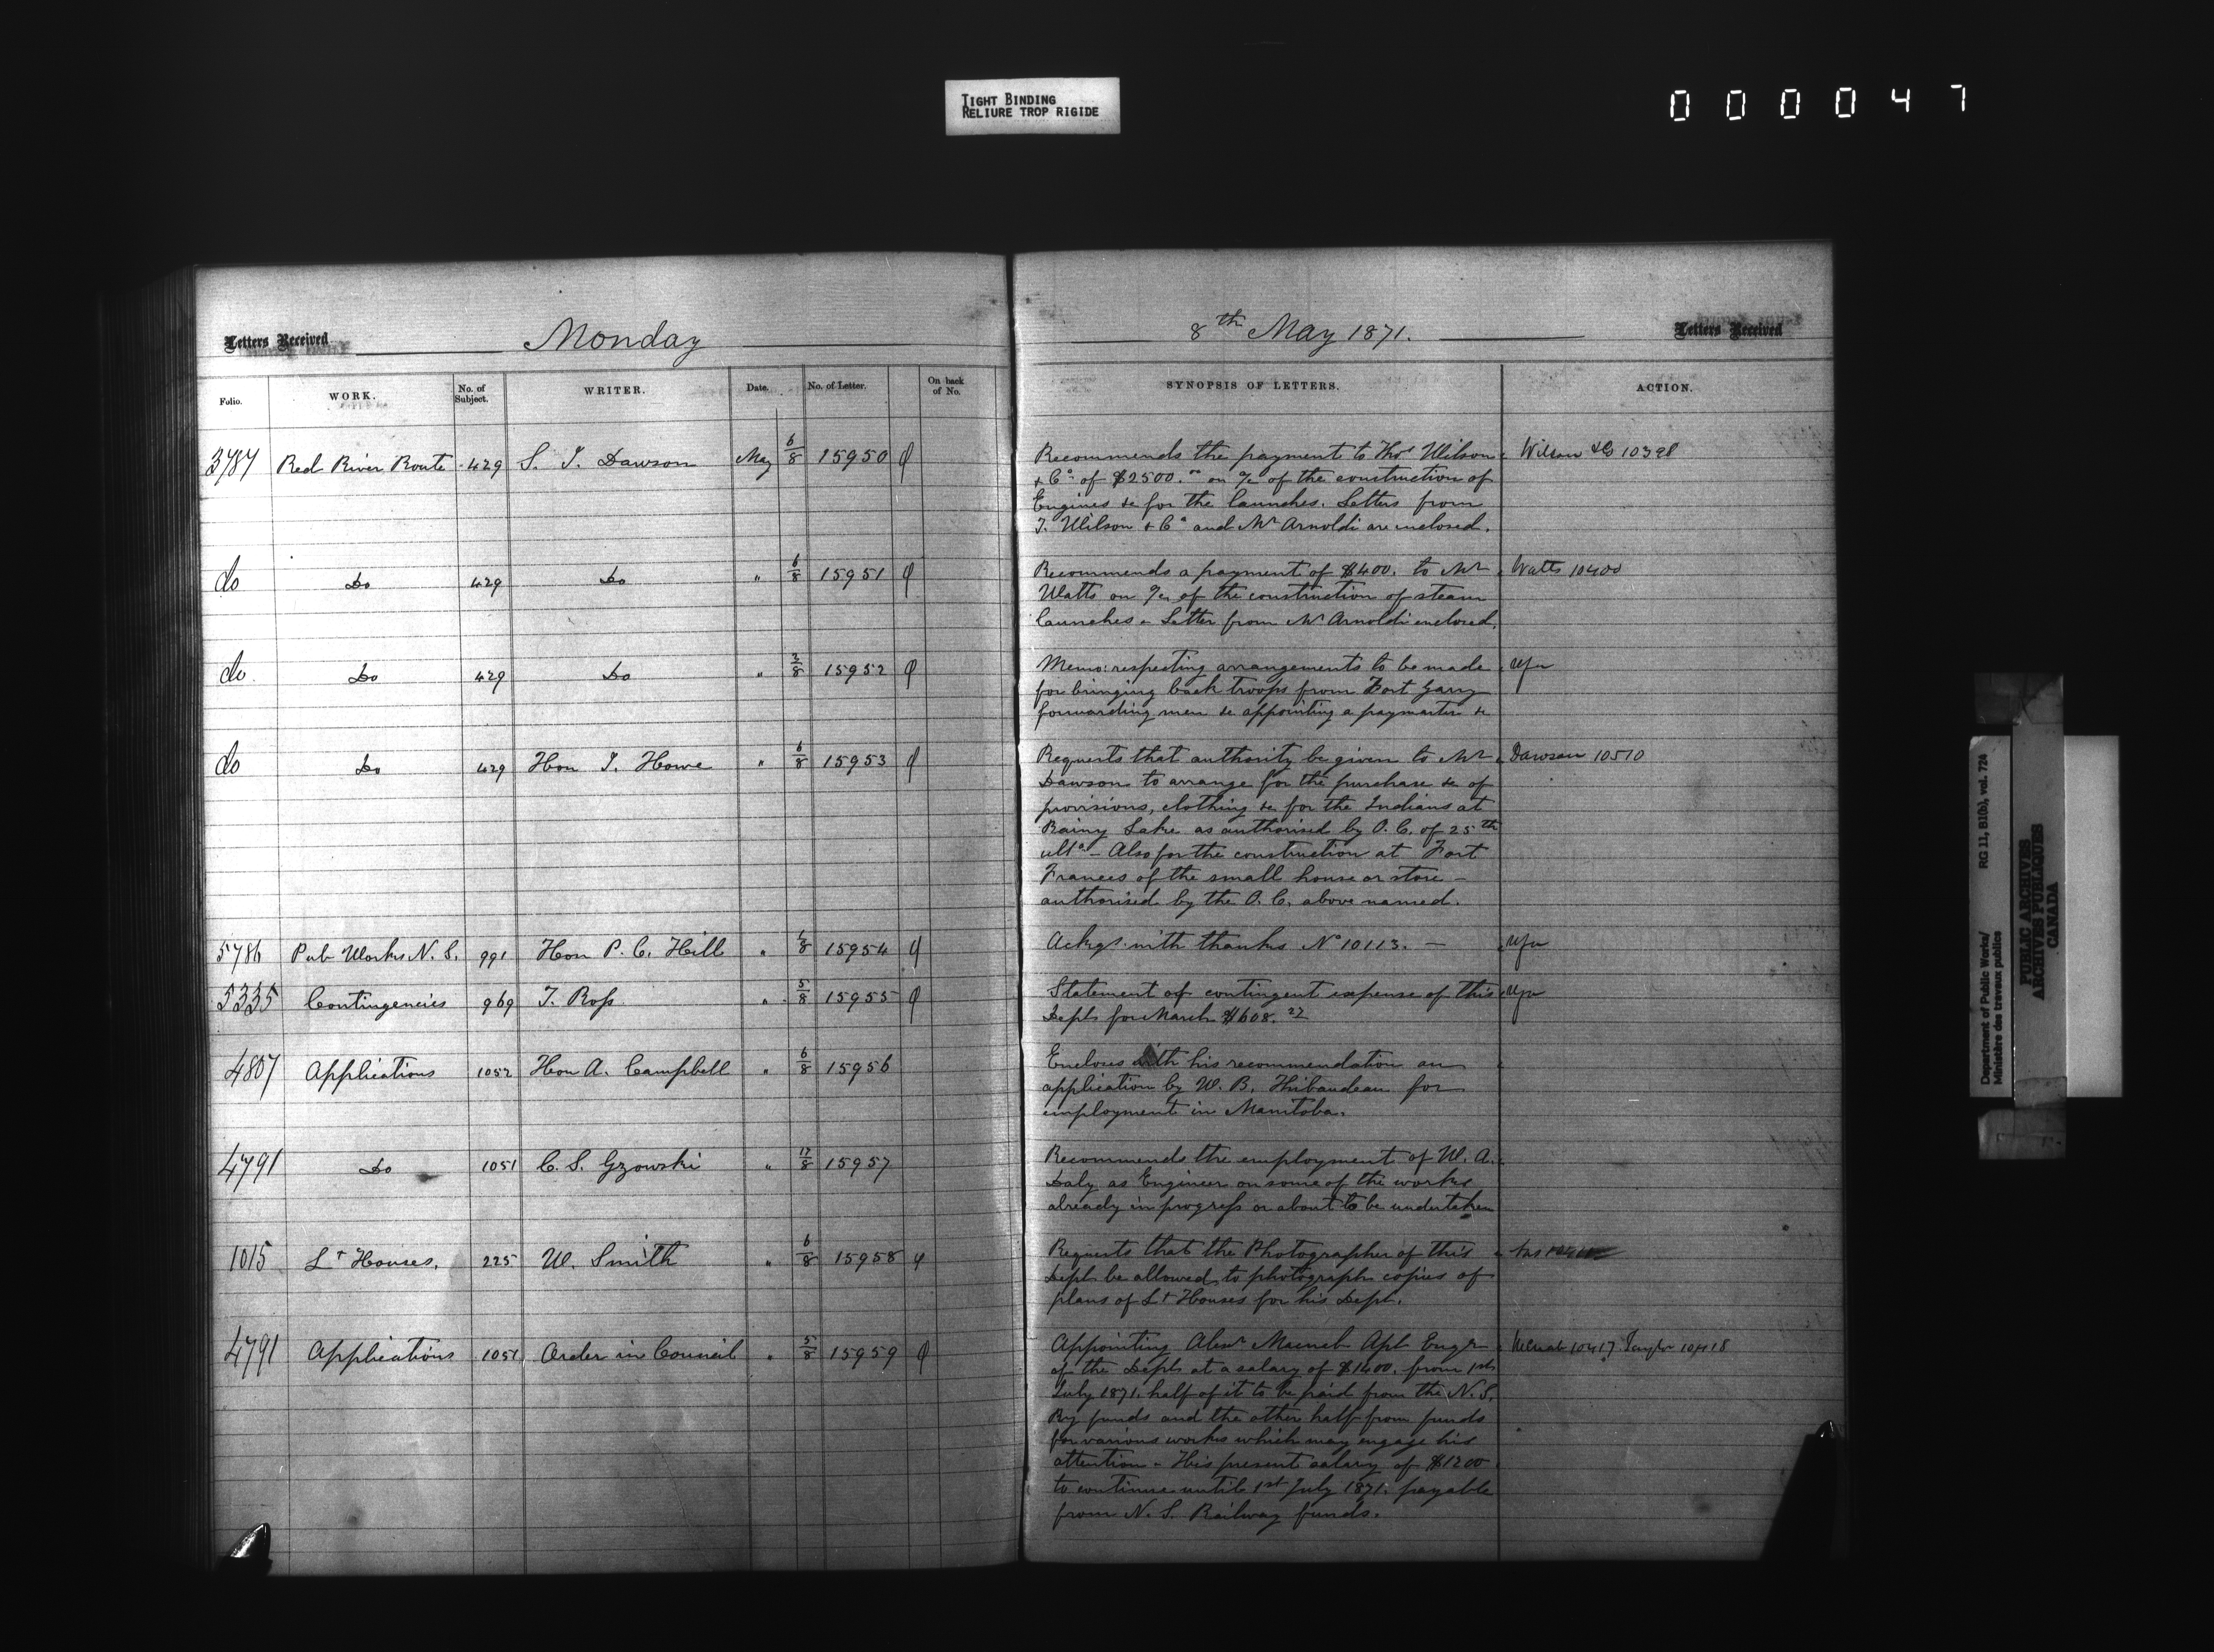 TIGHT BINDING
RELIURE TROP RIGIDE
000047
Letters Received Monday
8th May 1871. Letters Received
Folio. WORK. No. of Subject. WRITER. Date. No. of Letter. On back of No.
SYNOPSIS OF LETTERS. ACTION.
3787 Red River Route 429 S. J. Dawson May 6/8 15950
Recommends the payment to Thos Wilson Wilson & Co 10398
& Co of $2500.00 on a/c of the construction of
Engines &c for the launches. Letters from
T. Wilson & Co and Mr Arnoldi are enclosed.
do Do 429 Do " 6/8 15951
Recommends a payment of $400. to Mr Watts 10400
Watts on a/c of the construction of steam
launches - Letter from Mr Arnoldi enclosed.
do Do 429 Do " 2/8 15952
Memo: respecting arrangements to be made
for bringing back troops from Fort Garry
forwarding men &c appointing a paymaster &c
do Do 429 Hon J. Howe " 6/8 15953
Requests that authority be given to Mr Dawson 10510
Dawson to arrange for the purchase &c of
provisions, clothing &c for the Indians at
Rainy Lake as authorised by O. C. of 25th
ulto - Also for the construction at Fort
Frances of the small house or store -
authorised by the O. C. above named.
5786 Pub Works N. S. 991 Hon P. C. Hill " 6/8 15954
Ackgs with thanks No 10113. -
5335 Contingencies 969 T. Ross " 5/8 15955
Statement of contingent expense of this
Dept for March $608.27
4807 Applications 1052 Hon A. Campbell " 6/8 15956
Encloses with his recommendation an
application by W. B. Thibaudeau for
employment in Manitoba.
4791 Do 1051 C. S. Gzowski " 17/8 15957
Recommends the employment of W. A.
Daly as Engineer on some of the works
already in progress or about to be undertaken
1015 Lt Houses. 225 W. Smith " 6/8 15958
Requests that the Photographer of this
Dept be allowed to photograph copies of
plans of Lt Houses for his Dept.
4791 Applications 1051 Order in Council " 5/8 15959
Appointing Alexr Macnab Apt Engr McNab 10417 10418
of the Dept at a salary of $1400. from 1st
July 1871. half of it to be paid from the N. S.
Ry funds and the other half from funds
for various works which may engage his
attention - His present salary of $1200
to continue until 1st July 1871. payable
from N. S. Railway funds.
Department of Public Works/ RG 11, B1(b), vol. 724
Ministère des travaux publics
PUBLIC ARCHIVES
ARCHIVES PUBLIQUES
CANADA